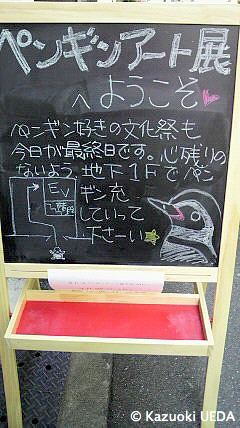 ペンギンアート展
へようこそ
ペンギン好きの文化祭も
今日が最終日です。心残りの
ないよう、地下1Fでペン
ギン充
していって
下さーい
EV
階段
© Kazuoki UEDA